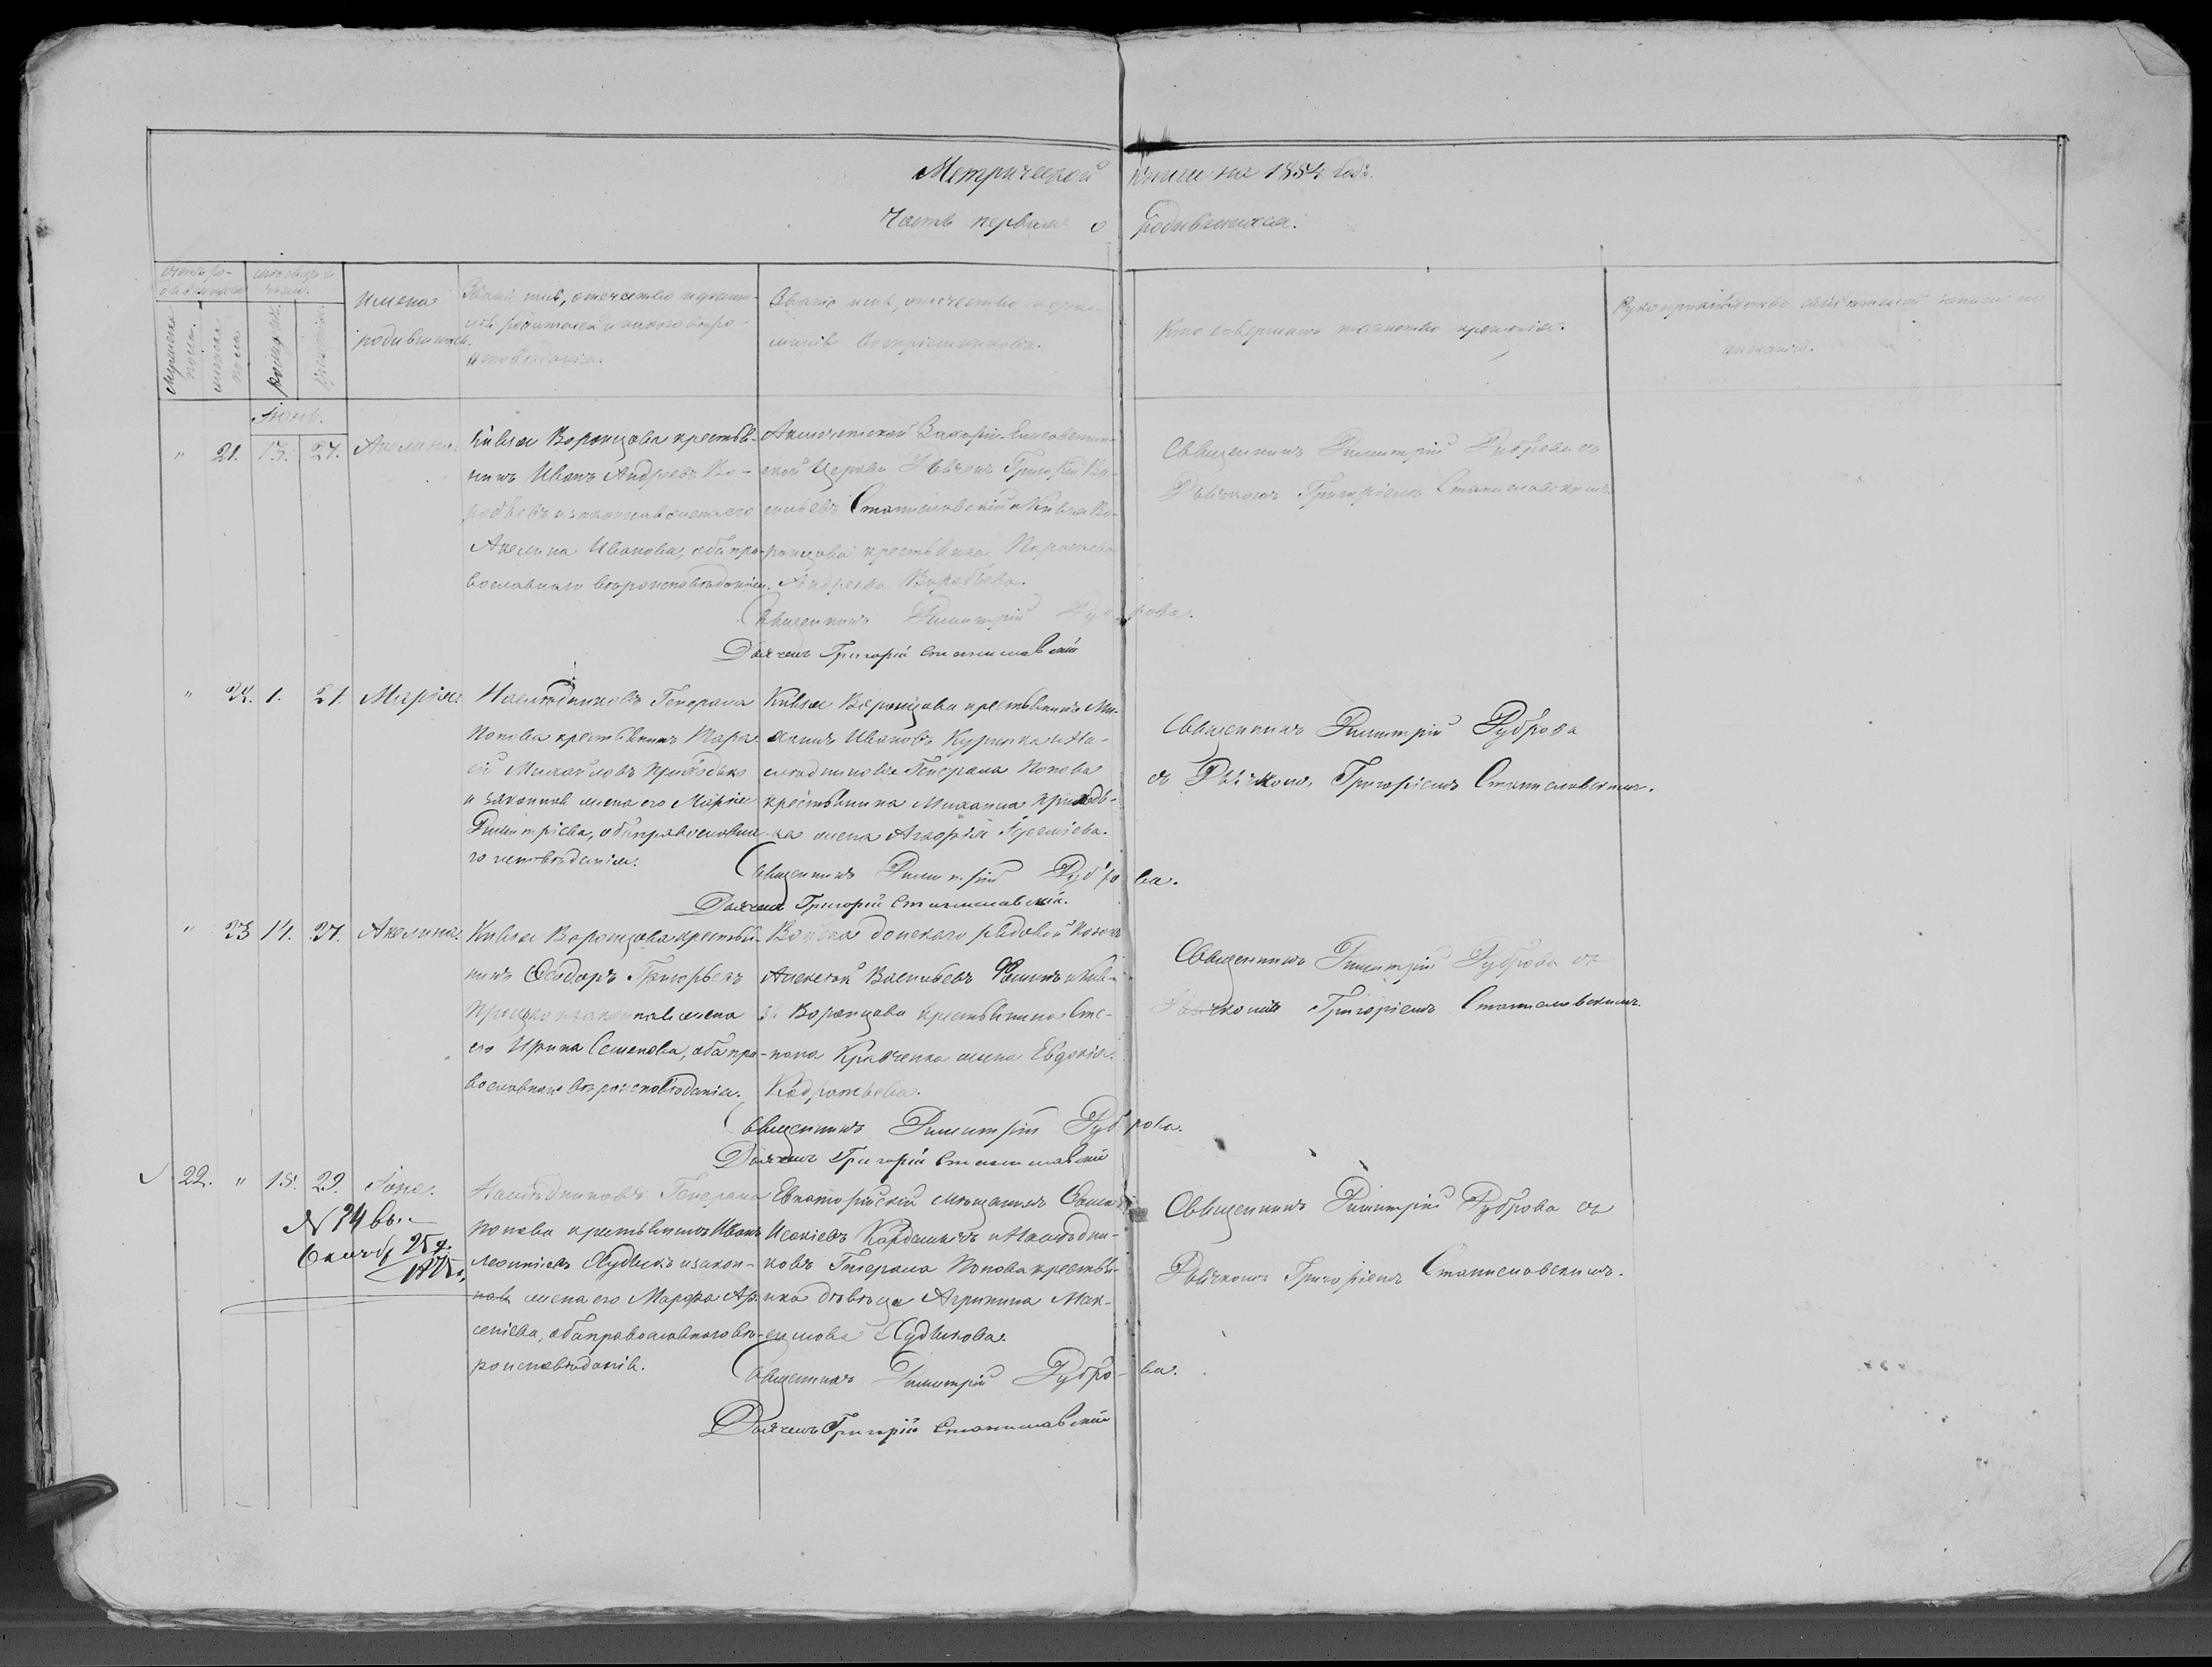 Метрической книги на 1854 годъ.
Часть первая о родившихся.
Счетъ ро-
дившихся
мѣсяцъ и
число.
Мужеска
пола.
женска
пола.
рожденія.
крещенія.
Имена
родившихся.
Званіе, имя, отечество и фами-
лія родителей и какого вѣро-
исповѣданія.
Званіе, имя, отечество и фа-
милія воспріемниковъ.
Кто совершалъ таинство крещенія.
Рукоприкладство свидѣтелей записи по
желанію.
Іюнь.
" 21. 13. 27. Акелина.
Князя Воронцова крестья-
нинъ Иванъ Андреевъ Во-
робьевъ и законная жена его
Акелина Иванова, оба пра-
вославнаго вѣроисповѣданія.
Захаріе-Елисаветин-
ской Церкви Дьячокъ Григорій Ва-
сильевъ Станиславскій и Князя Во-
ронцова крестьянка Параскева
Андреева Воробьева.
Священникъ Димитрій Дуброва съ
Дьячкомъ Григоріемъ Станиславскимъ.
Священникъ Димитрій Дуброва.
Дьячекъ Григорій Станиславскій
" 22. 1. 27. Марія.
Наслѣдниковъ Генерала
Попова крестьянинъ Тара-
сій Михайловъ Приходько
и законная жена его Марія
Димитріева, оба православна-
го исповѣданія.
Князя Воронцова крестьянинъ Ми-
хаилъ Ивановъ и На-
слѣдниковъ Генерала Попова
крестьянина Михаила Приходь-
ка жена Агафія
Священникъ Димитрій Дуброва
съ Дьячкомъ Григоріемъ Станиславскимъ.
Священникъ Димитрій Дуброва.
Дьячекъ Григорій Станиславскій.
" 23 14. 27. Акелина.
Князя Воронцова крестья-
нинъ Ѳеодоръ Григорьевъ
и законная жена
его Ирина Семенова, оба пра-
вославнаго вѣроисповѣданія.
Войска донскаго рядовой козакъ
Алексѣй Васильевъ и Кня-
зя Воронцова крестьянина Сте-
пана Кравченка жена Евдокія
Кодратьева.
Священникъ Димитрій Дуброва съ
Дьячкомъ Григоріемъ Станиславскимъ.
Священникъ Димитрій Дуброва.
Дьячекъ Григорій Станиславскій
22. " 15. 29. Іона.
Наслѣдниковъ Генерала
Попова крестьянинъ Иванъ
Леонтіевъ Худикъ и закон-
ная жена его Марфа Ар-
сеніева, оба православнаго вѣ-
роисповѣданія.
Евпаторійскій мѣщанинъ Ѳома
Исакіевъ и Наслѣдни-
ковъ Генерала Попова крестья-
нка дѣвица Агрипина Мак-
симова Худикова.
Священникъ Димитрій Дуброва съ
Дьячкомъ Григоріемъ Станиславскимъ.
N 74
25
Священникъ Димитрій Дуброва.
Дьячекъ Григорій Станиславскій